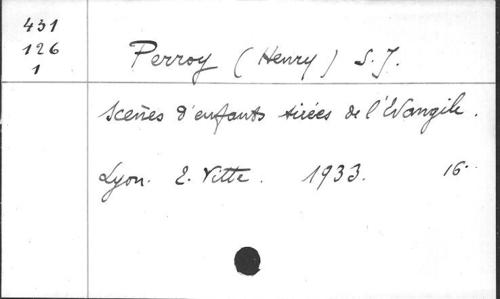 431
126
1
Perroy (Henry) S.J.
Scènes d'enfants tirées de l'Evangile.
Lyon. E. Vitte. 1933. 16.